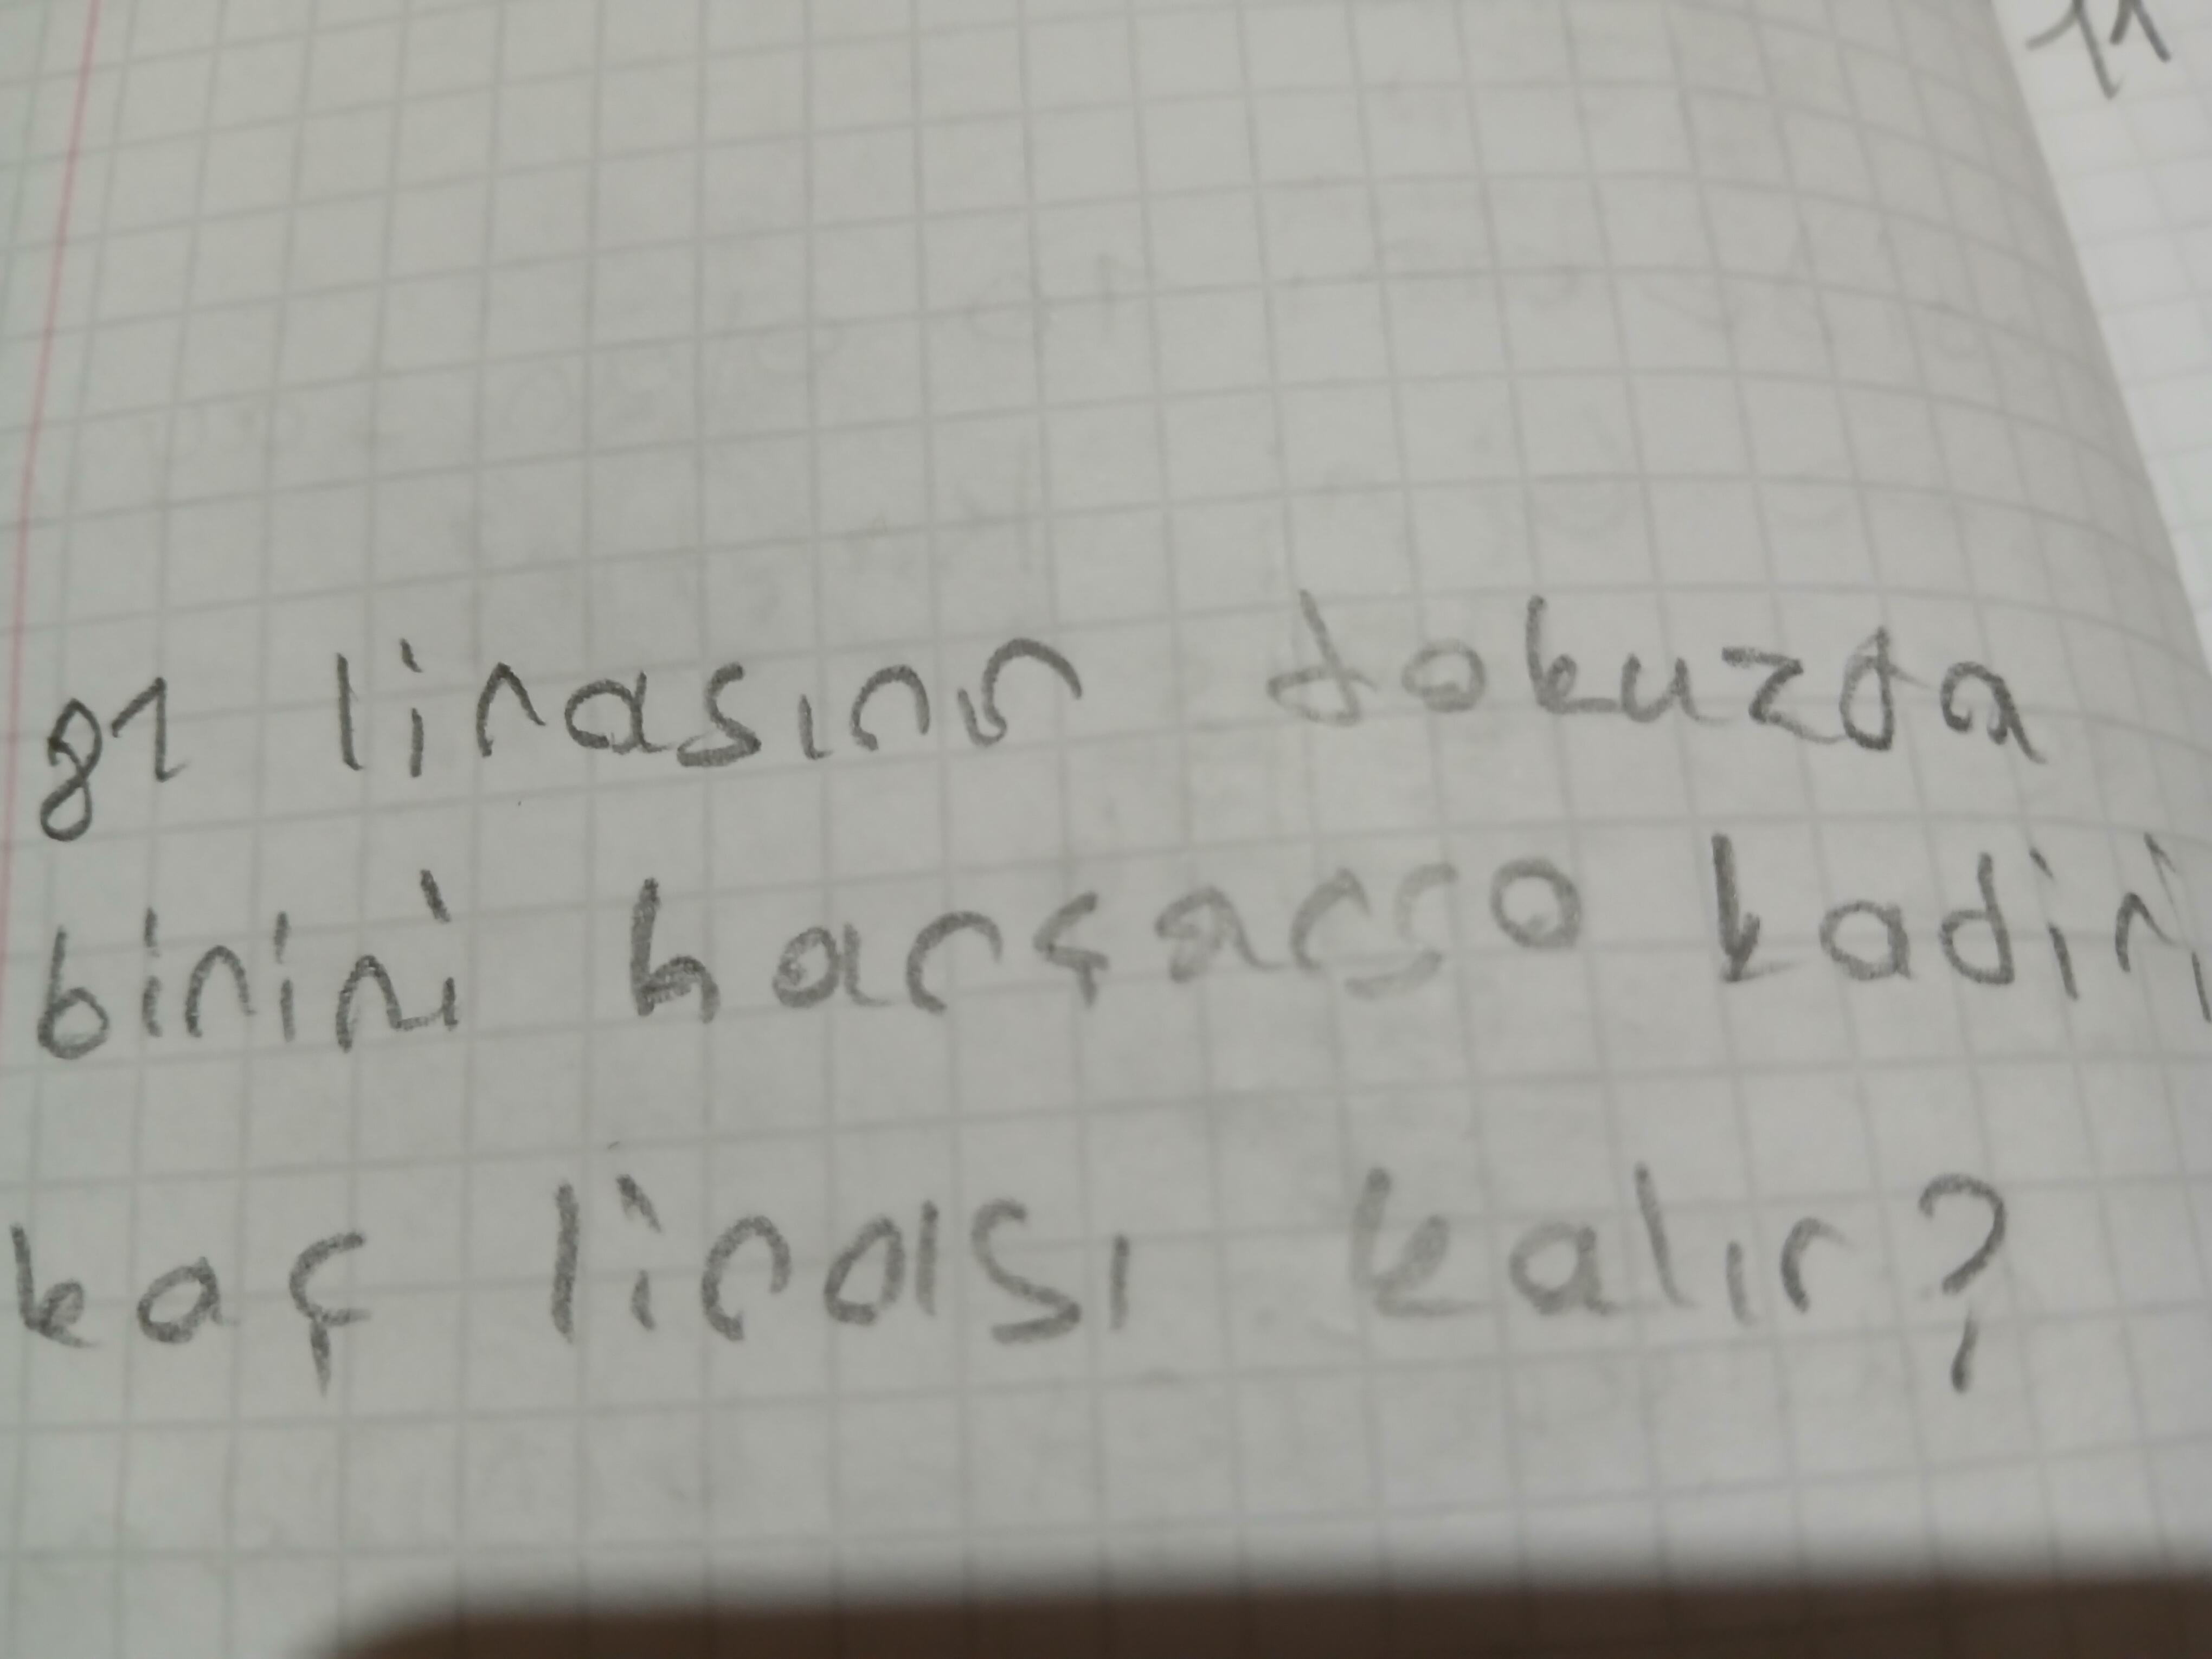 81 lirasının dokuzda
birini harcarsa kadir
kaç lirası kalır?